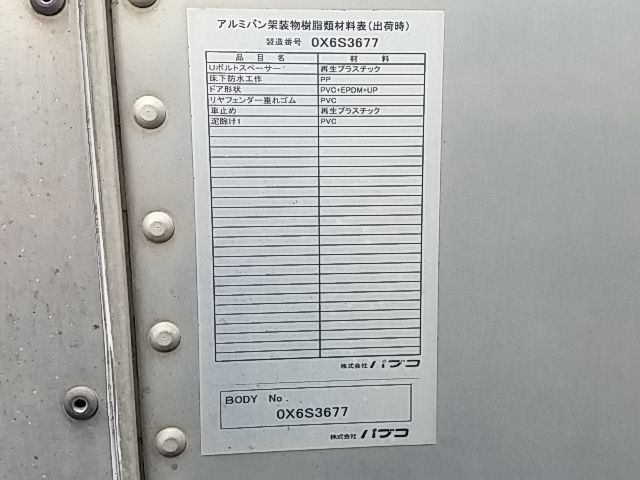 アルミバン架装物樹脂類材料表(出荷時)
製造番号 0X6S3677
品目名 材料
Uボルトスペーサー 再生プラスチック
床下防水工作 PP
ドア形状 PVC+EPDM+UP
リヤフェンダー垂れゴム PVC
車止め 再生プラスチック
泥除け1 PVC
株式会社 パブコ
BODY No.
0X6S3677
株式会社 パブコ